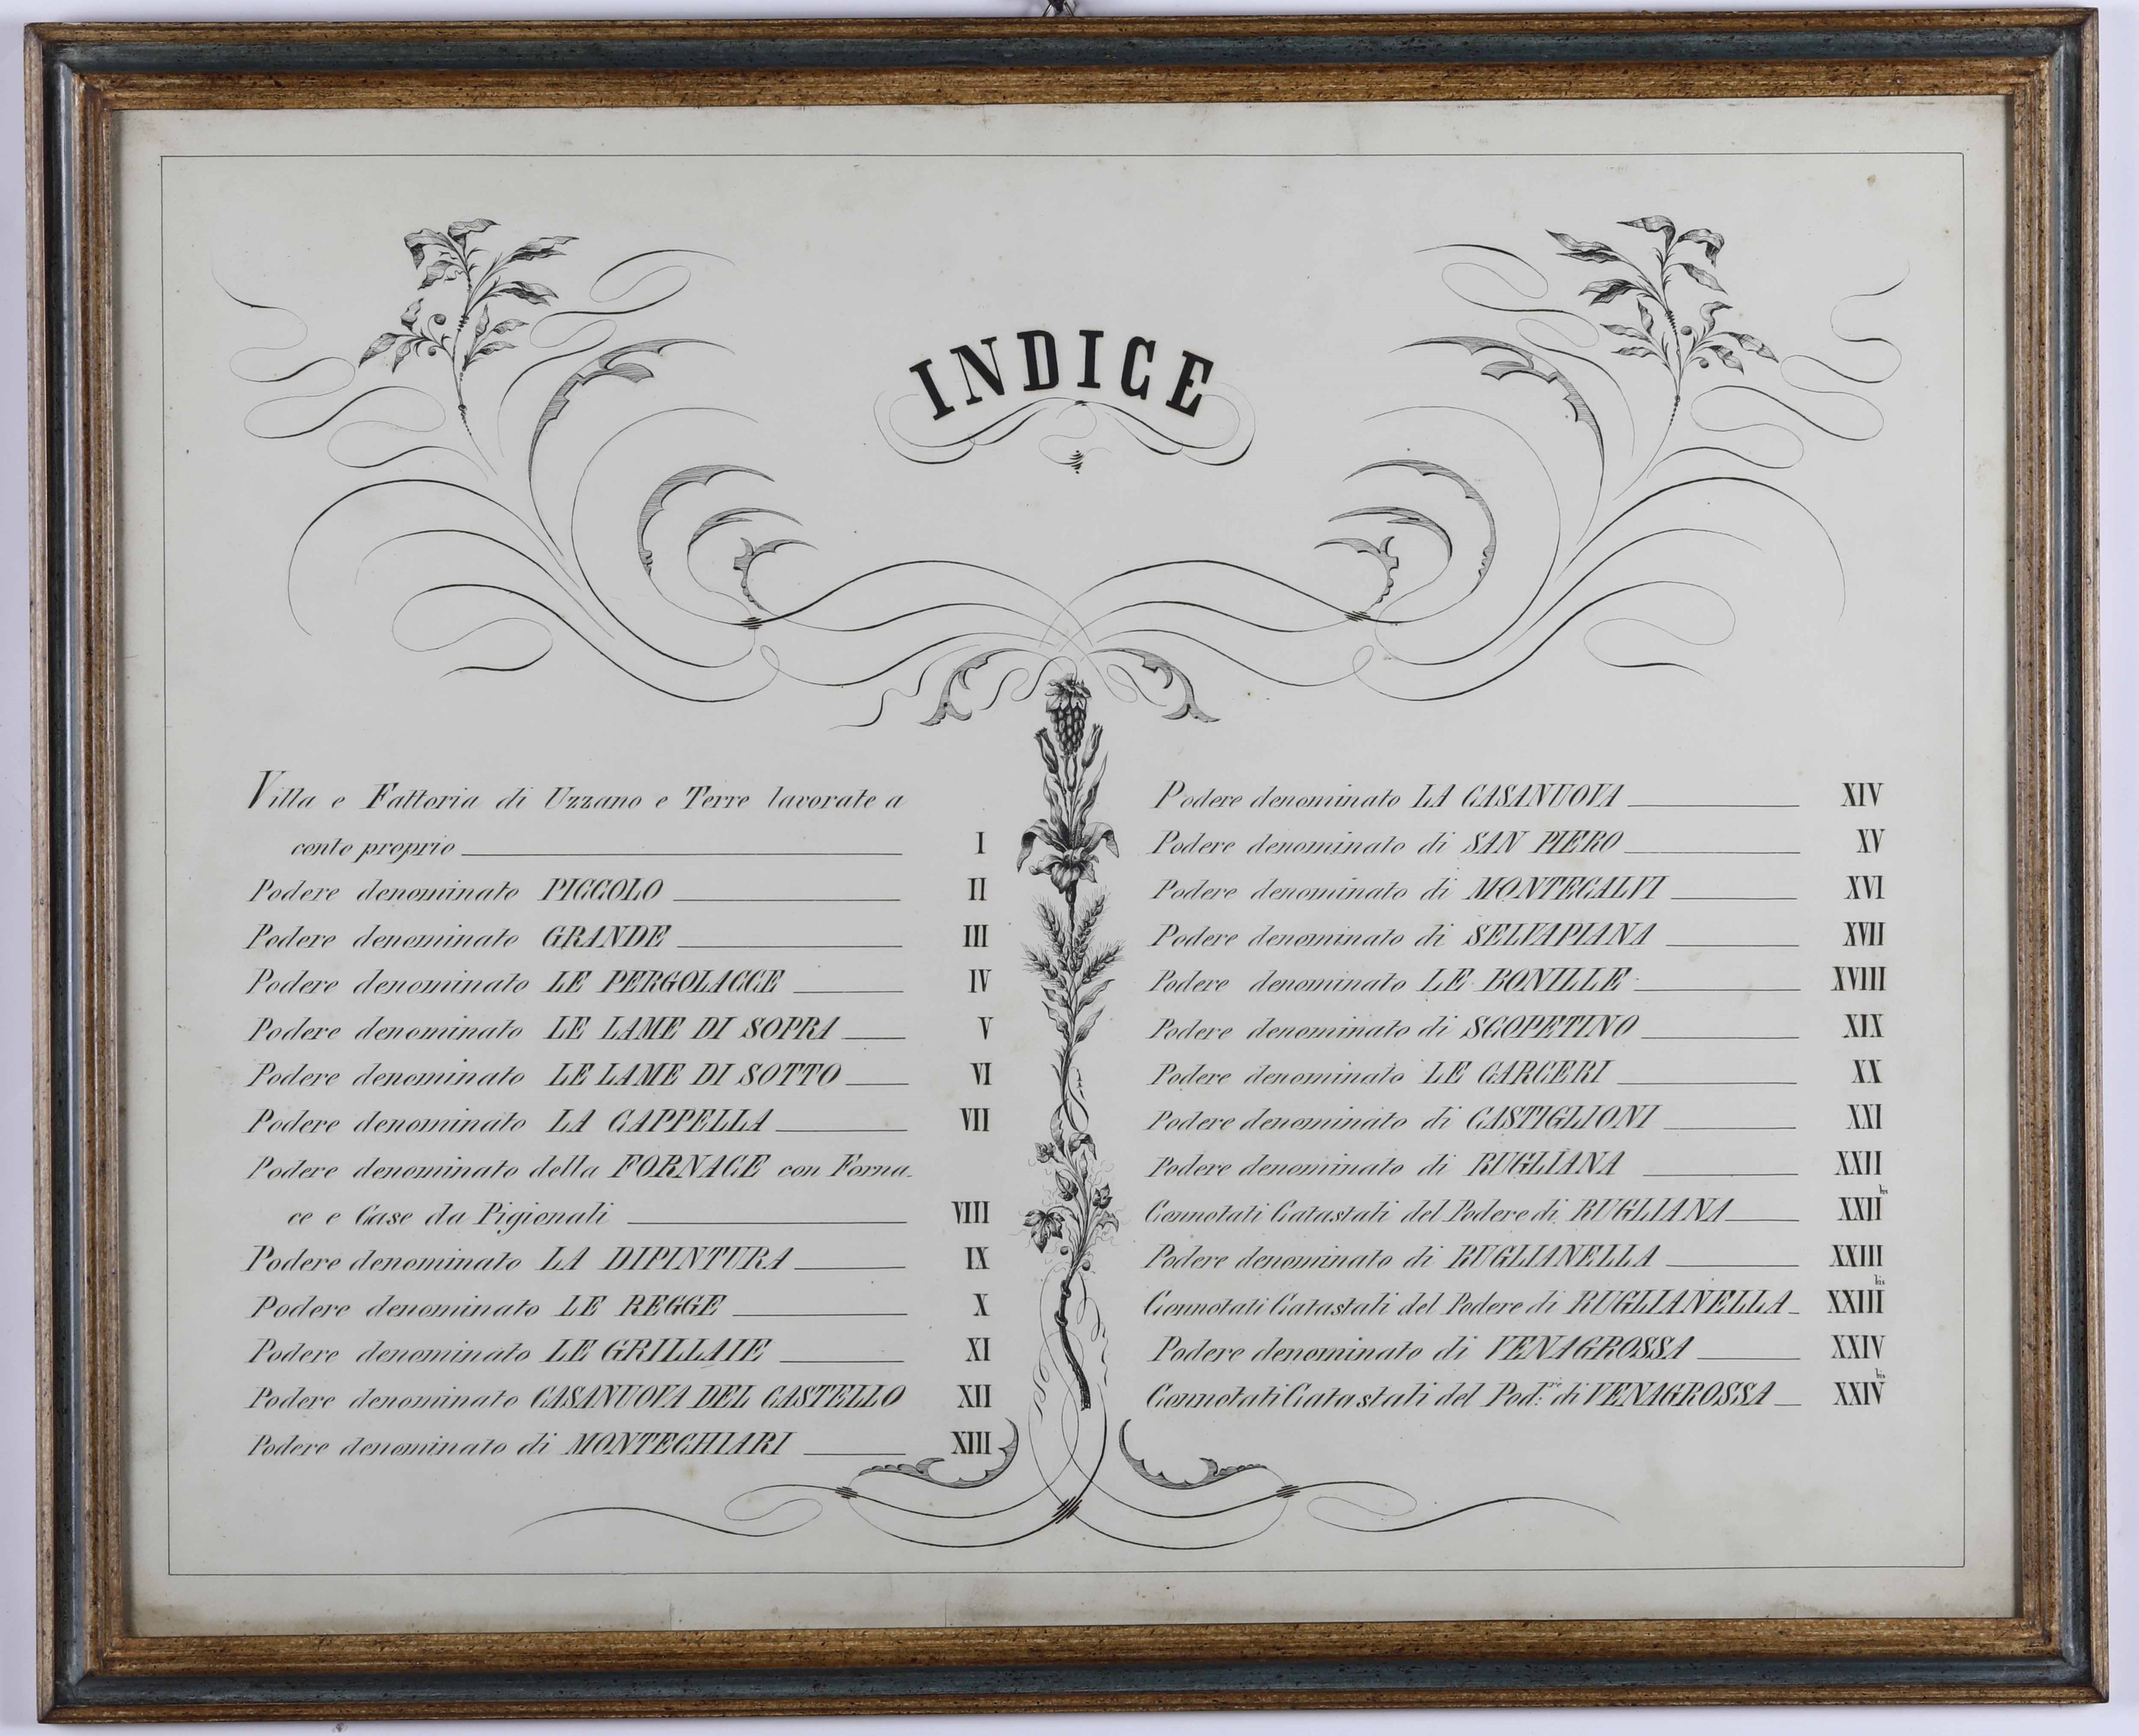 INDICE
Villa e Fattoria di Uzzano e Terre lavorate a
conto proprio I
Podere denominato PICCOLO II
Podere denominato GRANDE III
Podere denominato LE PERGOLACCE IV
Podere denominato LE LAME DI SOPRA V
Podere denominato LE LAME DI SOTTO VI
Podere denominato LA CAPPELLA VII
Podere denominato della FORNACE con Forna-
ce e Case da Pigionali VIII
Podere denominato LA DIPINTURA IX
Podere denominato LE REGGE X
Podere denominato LE GRILLAIE XI
Podere denominato CASANUOVA DEL CASTELLO XII
Podere denominato di MONTECHIARI XIII
Podere denominato LA CASANUOVA XIV
Podere denominato di SAN PIERO XV
Podere denominato di MONTECALVI XVI
Podere denominato di SELVAPIANA XVII
Podere denominato LE BONILLE XVIII
Podere denominato di SCOPETINO XIX
Podere denominato LE CARCERI XX
Podere denominato di CASTIGLIONI XXI
Podere denominato di RUGLIANA XXII
Connotati Catastali del Podere di RUGLIANA XXII bis
Podere denominato di RUGLIANELLA XXIII
Connotati Catastali del Podere di RUGLIANELLA XXIII bis
Podere denominato di VENAGROSSA XXIV
Connotati Catastali del Pod.re di VENAGROSSA XXIV bis